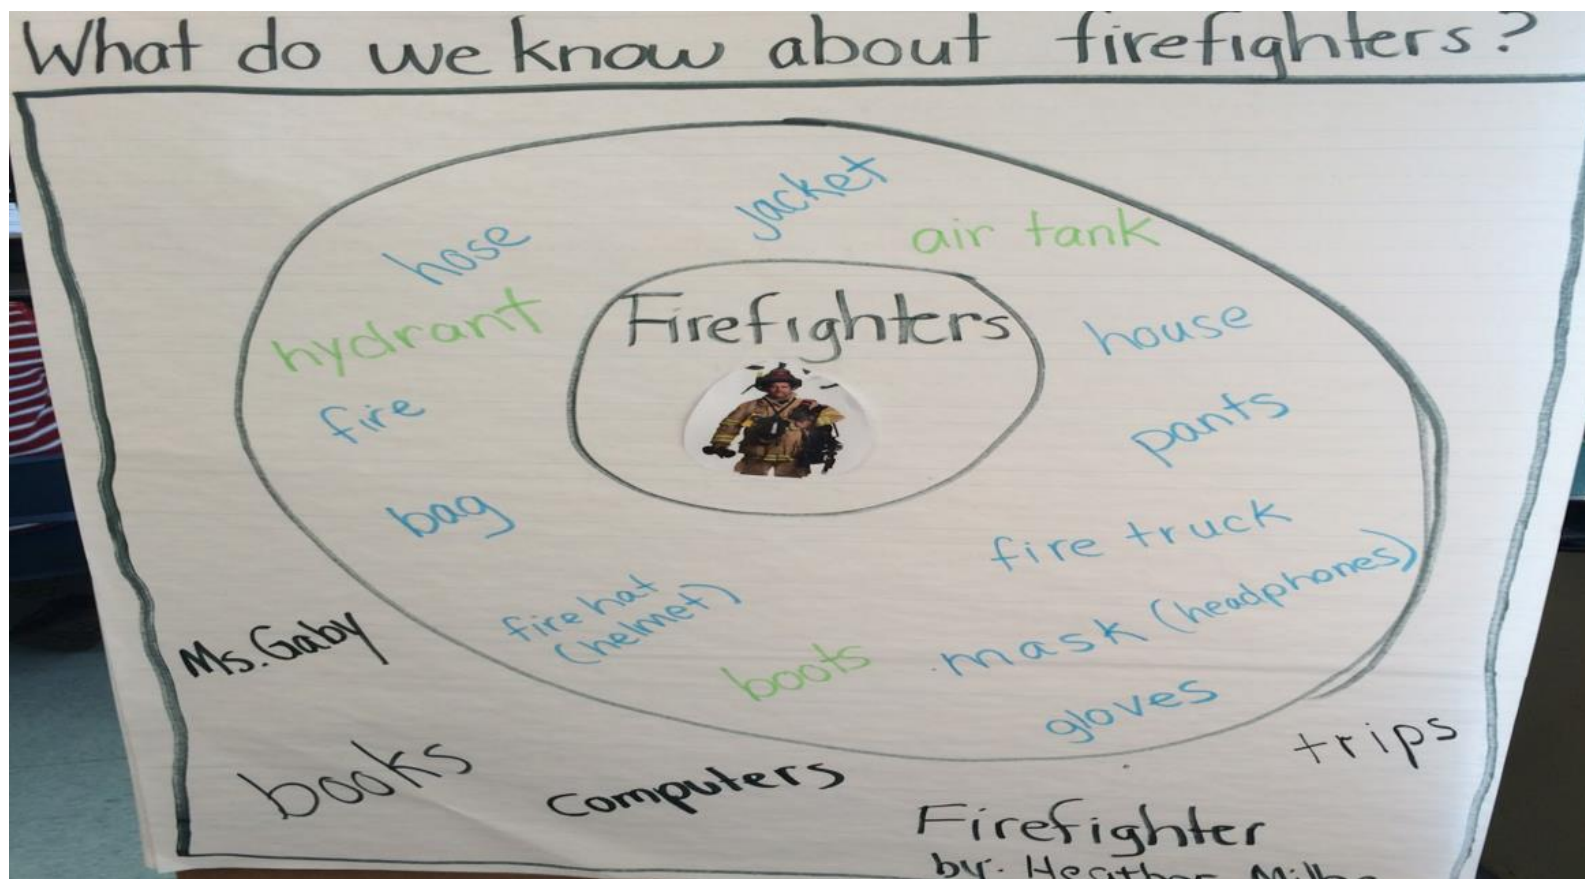 What do we know about firefighters?
jacket
air tank
hose
hydrant
Firefighters
house
fire
pants
bag
fire truck
fire hat
(helmet)
mask (headphones)
boots
gloves
Ms. Gaby
books
computers
trips
Firefighter
by: Heather